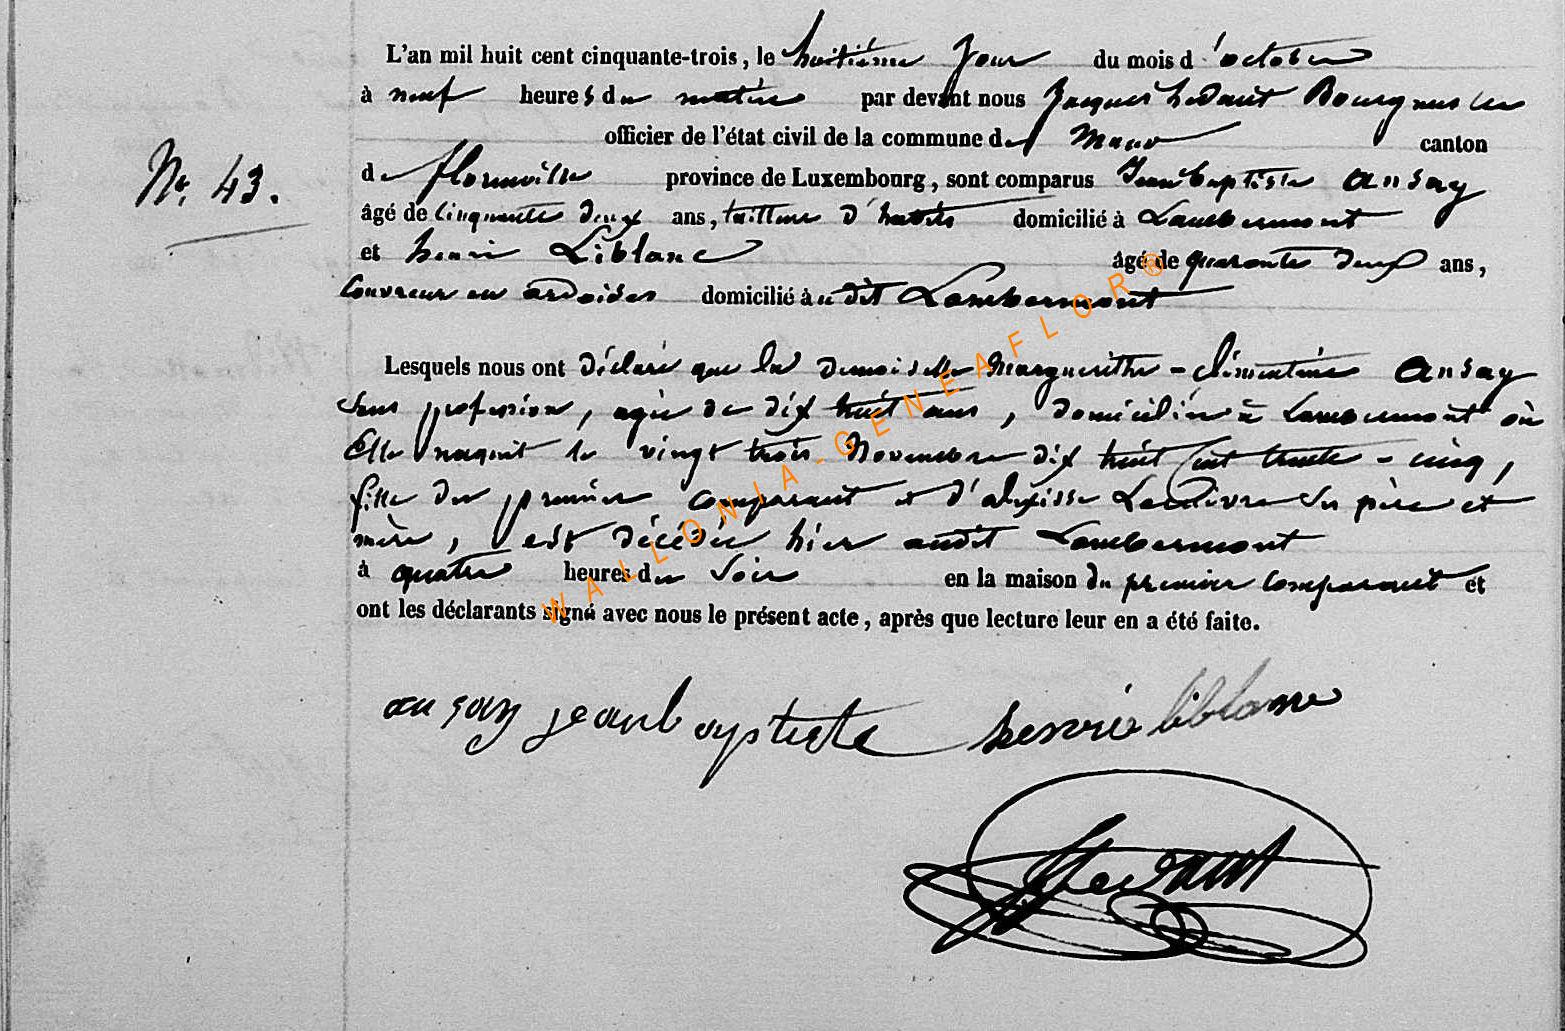 L'an mil huit cent cinquante-trois, le huitième Jour du mois d'octobre
à neuf heures du matin par devant nous Jacques hedant Bourgmestre
officier de l'état civil de la commune de Muno canton
N°. 43.
de florenville province de Luxembourg, sont comparus Jean baptiste ansay
âgé de cinquante deux ans, tailleur d'habits domicilié à Lambermont
et henri Liblanc âgé de quarante deux ans,
Couvreur en ardoises domicilié à u dit Lambermont
Lesquels nous ont déclaré que la demoiselle Margueritte - clémentine ansay
sans profession, agée de dix huit ans, domiciliée à Lambermont où
Elle naquit le vingt trois Novembre dix huit cent trente - cinq,
fille du premier comparant et d'alexisse Ses père et
mère, est décédée hier audit Lambermont
à quatre heures du soir en la maison du premier comparant et
ont les déclarants signé avec nous le présent acte, après que lecture leur en a été faite.
ansay jeanbaptiste henrie liblanc
hedant
WALLONIA-GENEAFLOR®